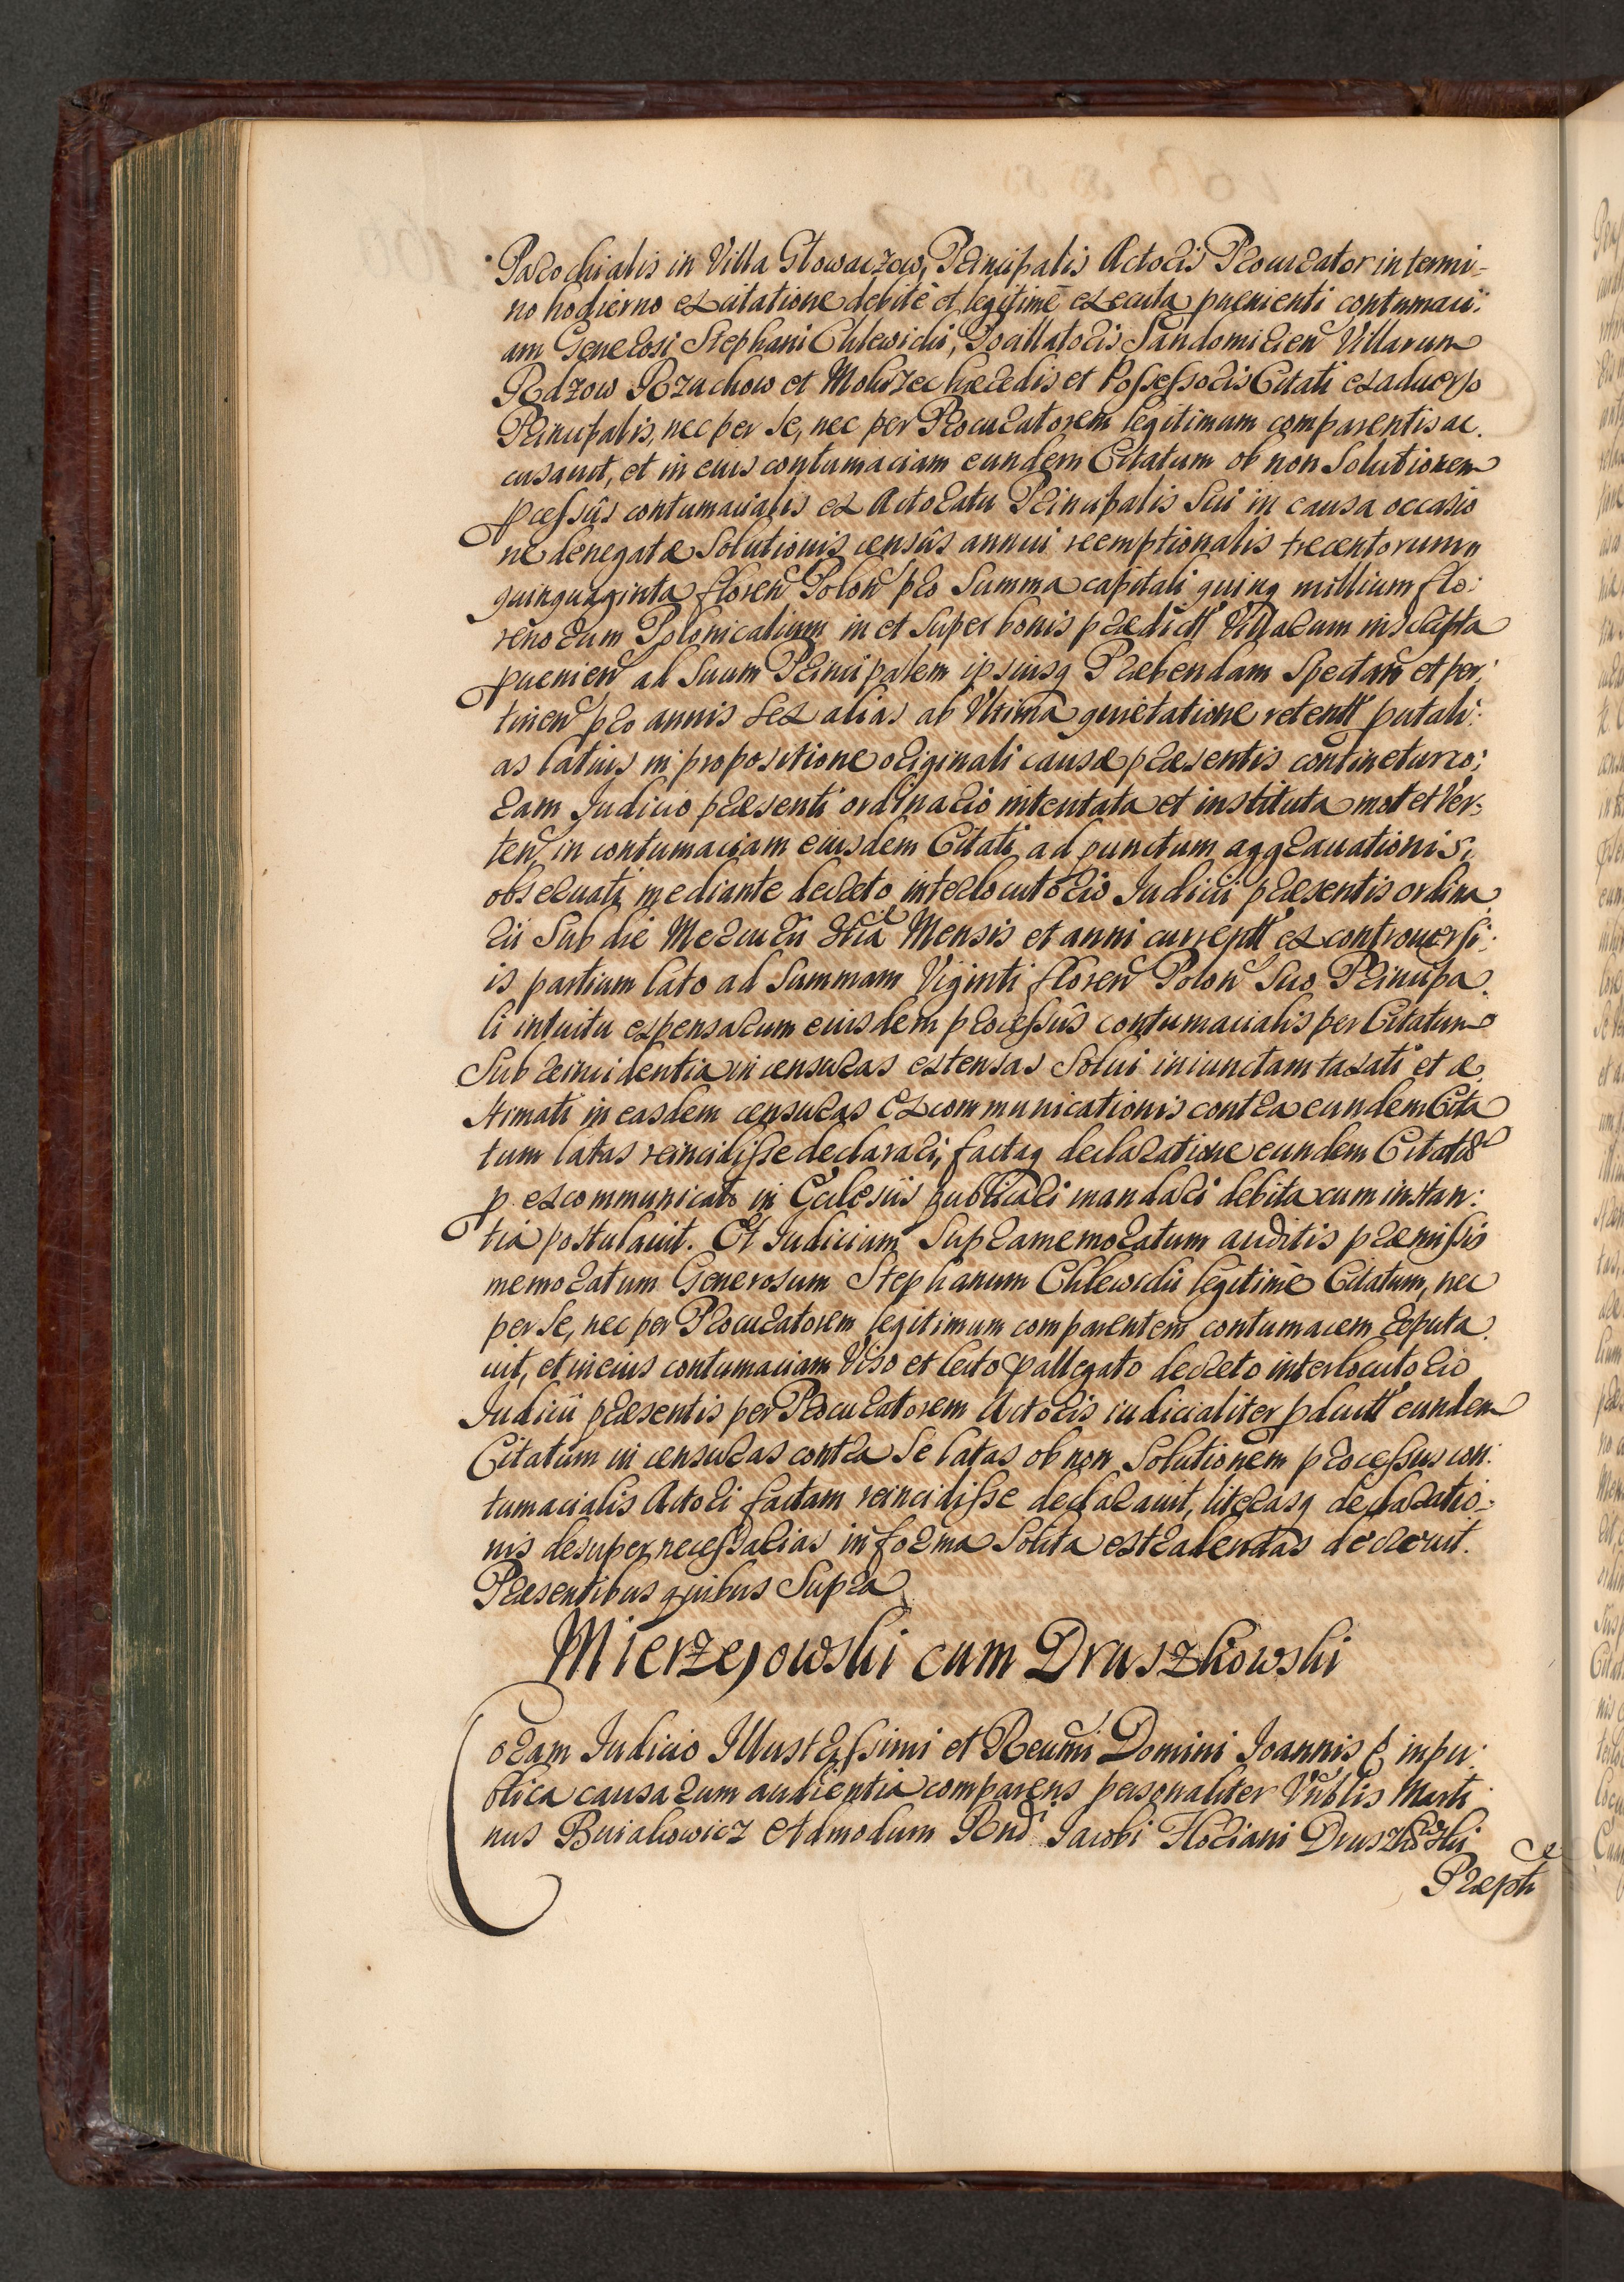 Parochialis in Villa Głowaczow, Principalis Actoris Procurator in termi-
no hodierno ex citatione debitè et legitimè executa puenienti contumaci:
am Generosi Stephani Chlewicki, Sandomirien Villarum
Rdzow Rzuchow et Mokrzec hæredis et Possessoris Citati ex aduerso
Principalis, nec per se, nec per Procuratorem legitimum comparentis ac.
cusauit, et in eius contumaciam eundem Citatum ob non Solutionem
pcessûs contumacialis ex Actoratu Principalis Sui in causa occasio
ne denegatæ Solutionis censûs annui reemptionalis trecentorum
quinquaginta floren Polon pro Summa capitali quinq millium flo:
renorum Polonicalium in et super bonis prædictt Villarum inscripta
puenien ad Suum Principalem ipsiusq Præbendam Spectan et per:
tinen pro annis sex alias ab Vltima quietatione retentt putali:
as latius in propositione originali causæ præsentis continetur co:
ram Judicio præsenti ordinario intentata et instituta mot et Ver:
ten, in contumaciam eiusdem Citati ad punctum aggrauationis,
obseruati mediante decreto interlocutorio Iudicii præsentis ordina
rii Sub die Mercurii Mensis et anni currentt ex controuersi:
is partium lato ad Summam Viginti floren Polon Suo Principa.
li intuitu expensarum eiusdem processûs contumacialis per Citatum
Sub reincidentia in censuras extensas Solui iniunctam taxati et æ.
stimati in easdem censuras Excommunicationis contra eundem Cita
tum latas reincidisse declarari, factaq declaratione eundem Citatū
p excommunicato in Ecclesiis publicari mandari debita cum instan:
tia postulauit. Et Iudicium Supramemoratum auditis præmissis
memoratum Generosum Stephanum Chlewicki legitimè Citatum, nec
per se, nec per Procuratorem legitimum comparentem contumacem reputa.
uit, et in eius contumaciam Viso et lecto pallegato decreto interlocutorio
Iudicii præsentis per Procuratorem Actoris iudicialiter pductt eundem
Citatum in censuras contra Se latas ob non Solutionem processus con:
tumacialis Actori factam reincidisse declarauit, literasq declaratio:
nis desuper necessarias in forma Solita extradendas decreuit.
Præsentibus quibus Supra
Mierzejowski cum Druszkowski
Coram Iudicio Illustrissimi et Reuñi Domini Joannis in pu:
blica causarum audientia comparens personaliter Marti
nus Buiakowicz Admodum Rndi Jacobi Floriani Druszkowski
Præpti